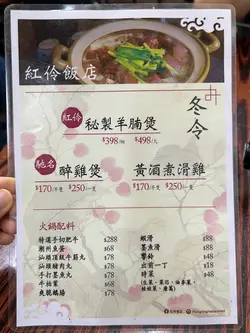 紅伶飯店
冬令
紅伶 秘製羊腩煲
$398/例 $498/大
馳名 醉雞煲
$170/半隻 $250/一隻
黃酒煮滑雞
$170/半隻 $250/一隻
火鍋配料
特選手切肥牛 $288
潮州魚蛋 $68
汕頭頂級牛筋丸 $78
汕頭豬肉丸 $78
手打墨魚丸 $78
牛柏葉 $68
爽脆鵝腸 $88
蝦滑 $128
墨魚滑 $88
響鈴 $48
出前一丁 $18
時菜 $48